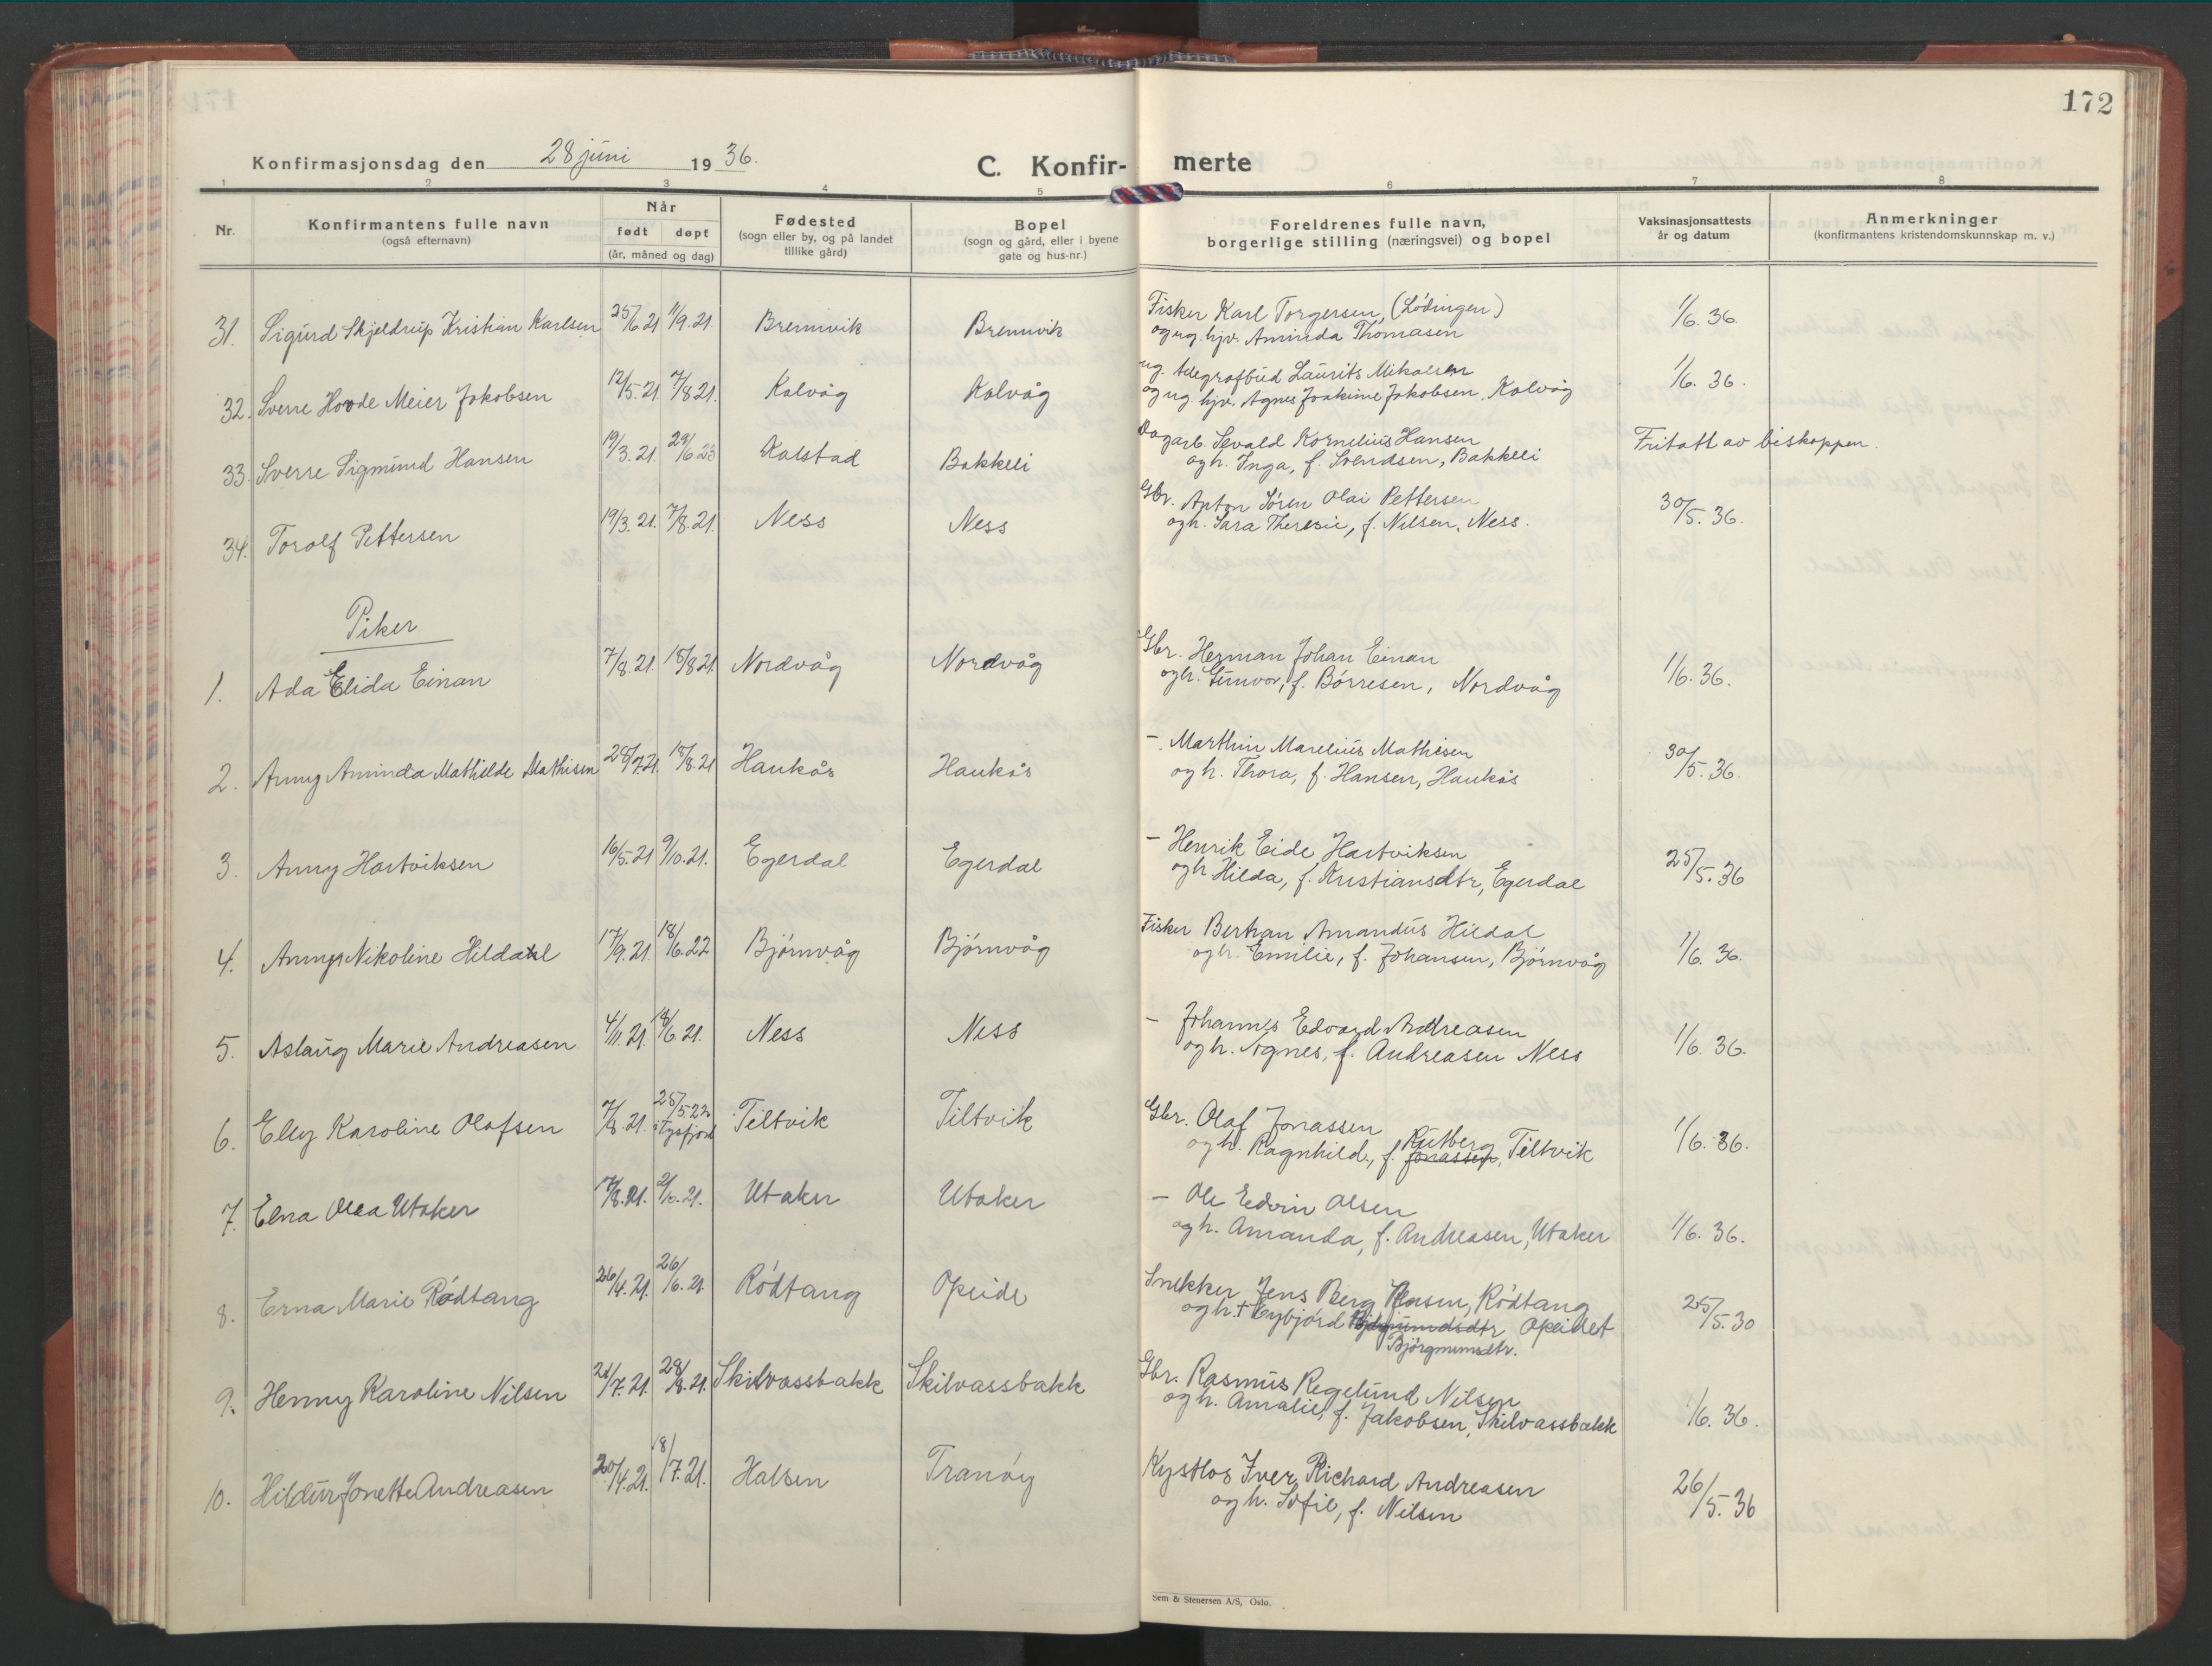 172
Konfirmasjonsdag den 28 juni 1936.
C. Konfirmerte
1 2 3 4 5 6 7 8
Nr.
Konfirmantens fulle navn
(også efternavn)
Når
født døpt
(år, måned og dag)
Fødested
(sogn eller by, og på landet
tillike gård)
Bopel
(sogn og gård, eller i byene
gate og hus-nr.)
Foreldrenes fulle navn,
borgerlige stilling (næringsvei) og bopel
Vaksinasjonsattests
år og datum
Anmerkninger
(konfirmantens kristendomskunnskap m. v.)
31. Sigurd Skjeldrup Kristian Karlsen 25/6.21 11/9.21. Bremvik Bremvik Fisker Karl Torgersen, (Lødingen) 1/6. 36.
og ug. hjv. Aminda Thomasen
32. Sverre Hovde Meier Jakobsen 12/5.21. 7/8.21. Kalvåg Kalvåg ug. telegrafbud Laurits Mikalsen 1/6. 36.
og ug. hjv. Agnes Joakime Jakobsen, Kalvåg
33. Sverre Sigmund Hansen 19/3.21. 29/6.23 Kalstad Bakkeli Dagarb. Sevald Kornelius Hansen Fritatt av biskoppen.
og h. Inga, f. Svendsen, Bakkeli
34. Torolf Pettersen 19/3.21. 7/8.21. Ness Ness Gbr. Anton Søren Olai Pettersen 30/5. 36.
og h. Sara Theresie, f. Nilsen, Ness.
Piker
1. Ada Elida Einan 7/8.21. 15/8.21 Nordvåg Nordvåg Gbr. Herman Johan Einan 1/6. 36.
og h. Gunvor, f. Børresen, Nordvåg
2. Anny Aminda Mathilde Mathisen 28/7.21. 15/8.21 Haukås Haukås – Marthin Marelius Mathisen 30/5. 36.
og h. Thora, f. Hansen, Haukås
3. Anny Hartviksen 16/5.21 9/10.21. Egerdal Egerdal – Henrik Eide Hartviksen 25/5.36
og h Hilda, f. Kristiansdtr, Egerdal
4. Anny Nikoline Hildal 17/9.21. 18/6.22 Bjørnvåg Bjørnvåg Fisker Bertran Amandus Hildal 1/6. 36.
og h. Emilie, f. Johansen, Bjørnvåg
5. Aslaug Marie Andreasen 4/11.21. 18/6.21. Ness Ness – Johannes Edvard Andreasen 1/6. 36.
og h. Agnes, f. Andreasen Ness
6. Elly Karoline Olafsen 7/8.21. 25/5.22 i Tysfjord Tiltvik Tiltvik Gbr. Olaf Jonassen 1/6. 36.
og h. Ragnhild, f. Jonassen Rutberg, Tiltvik
7. Elna Olea Utaker 17/8.21. 2/10.21. Utaker Utaker – Ole Edvin Olsen 1/6. 36.
og h. Amanda, f. Andreasen, Utaker
8. Erna Marie Rødtang 26/4.21. 26/6.21. Rødtang Opeide Snekker Jens Berg Jensen, Rødtang 25/5.30
og h. + Eybjørd Opeidet
Bjørgmunsdtr.
9. Henny Karoline Nilsen 21/7.21. 28/8.21. Skilvassbakk Skilvassbakk Gbr. Rasmus Regelund Nilsen 1/6. 36.
og h. Amalie, f. Jakobsen, Skilvassbakk
10. Hildur Jonette Andreasen 20/4.21. 18/7.21. Halsen Tranøy Kystlos Iver Richard Andreasen 26/5.36
og h. Sofie, f. Nilsen
Sem & Stenersen A/S, Oslo.